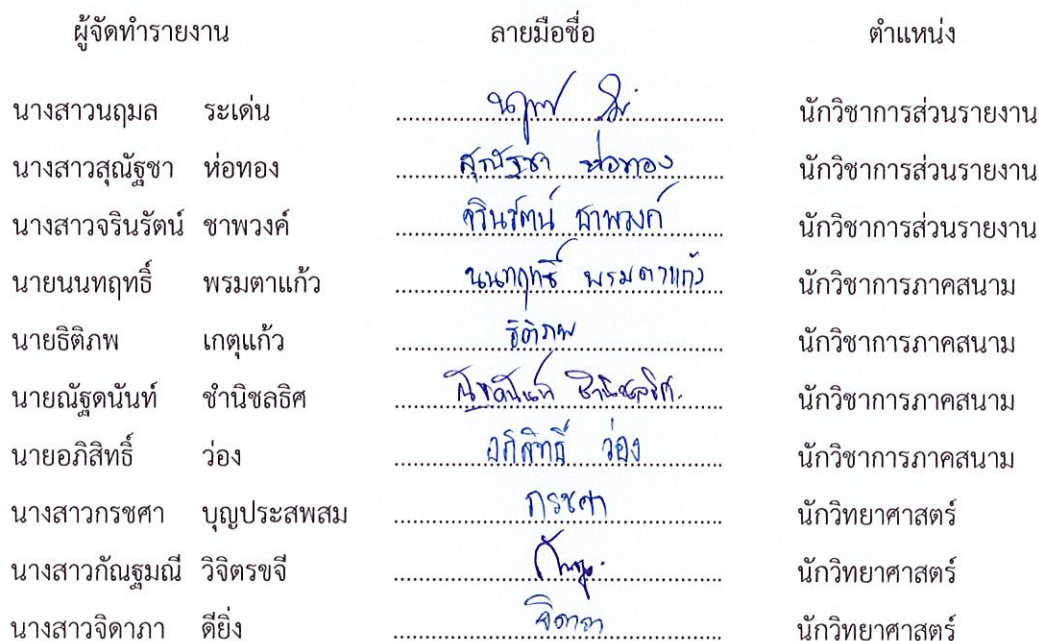 ผู้จัดทำรายงาน ลายมือชื่อ ตำแหน่ง
นางสาวนฤมล ระเด่น นักวิชาการส่วนรายงาน
นางสาวสุณัฐชา ห่อทอง สุณัฐชา ห่อทอง นักวิชาการส่วนรายงาน
นางสาวจรินรัตน์ ชาพวงค์ จรินรัตน์ ชาพวงค์ นักวิชาการส่วนรายงาน
นายนนทฤทธิ์ พรมตาแก้ว นนทฤทธิ์ พรมตาแก้ว นักวิชาการภาคสนาม
นายธิติภพ เกตุแก้ว ธิติภพ นักวิชาการภาคสนาม
นายณัฐดนันท์ ชำนิชลธิศ ณัฐดนันท์ ชำนิชลธิศ. นักวิชาการภาคสนาม
นายอภิสิทธิ์ ว่อง อภิสิทธิ์ ว่อง นักวิชาการภาคสนาม
นางสาวกรชศา บุญประสพสม กรชศา นักวิทยาศาสตร์
นางสาวกัณฐมณี วิจิตรขจี นักวิทยาศาสตร์
นางสาวจิดาภา ดียิ่ง จิดาภา นักวิทยาศาสตร์